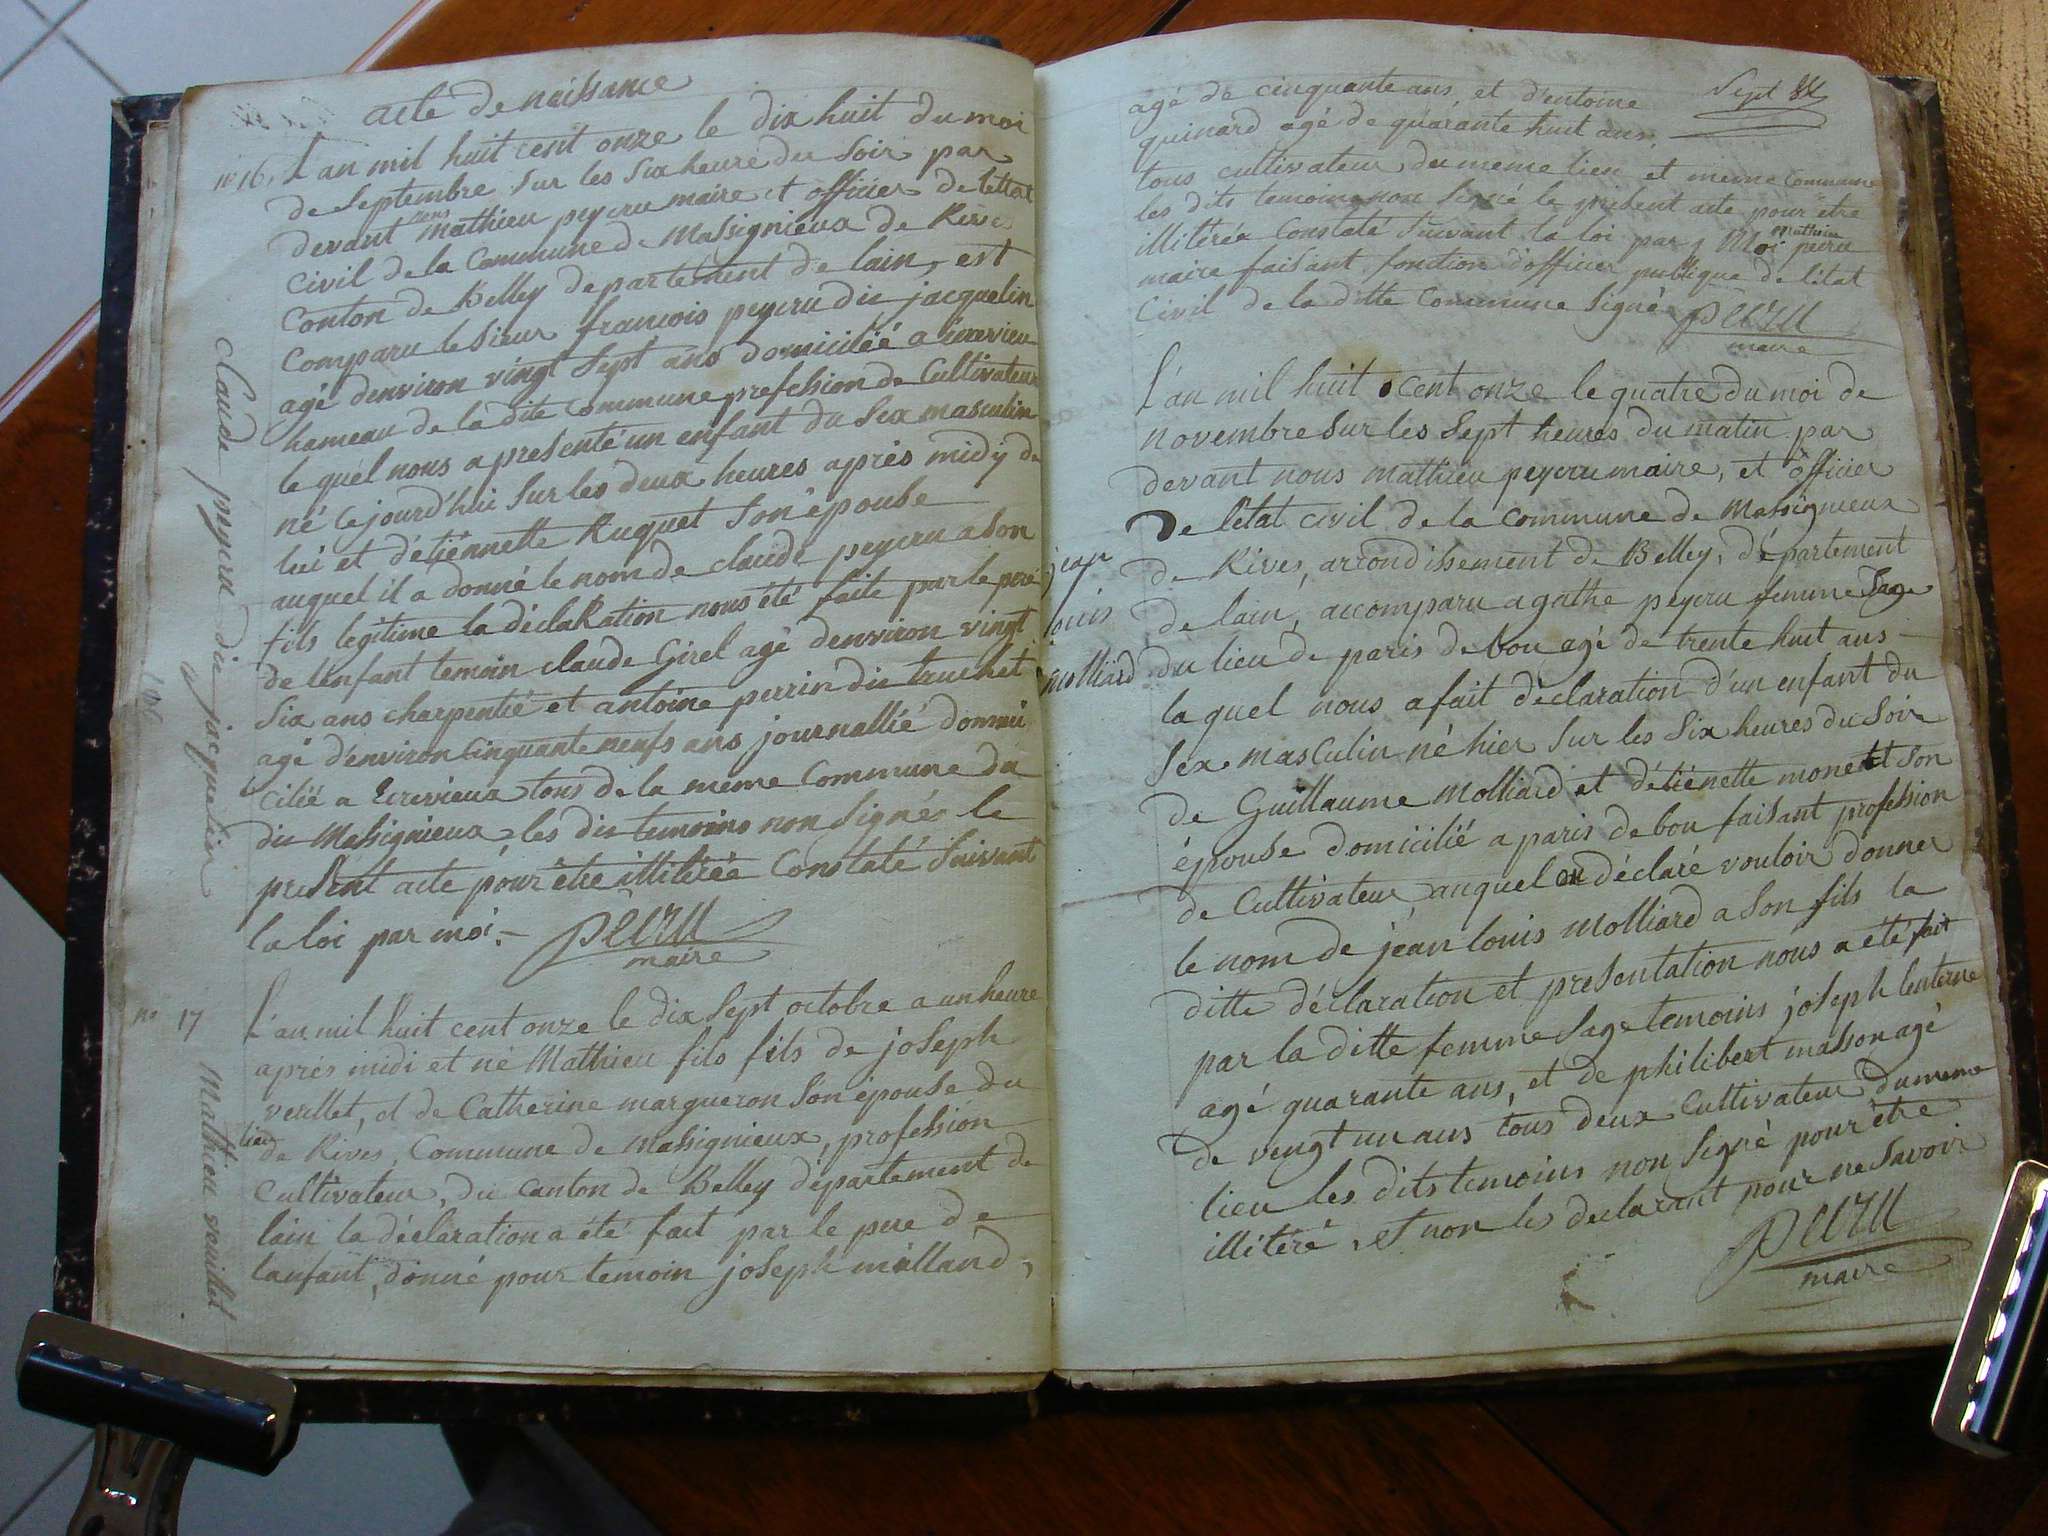 acte de naissance
n° 16. L'an mil huit cent onze le dix huit du moi
de Septembre sur les six heure du soir par
devant nous mathieu peycru maire et officier de lettat
civil de la Commune de Massignieux de Rives
Conton de Belley departement de lain, est
comparu le sieur francois peycru dit jacquelin
agé denviron vingt sept ans domicilié a
hameau de la dite commune profession de Cultivateur
le quel nous a presenté un enfant du sex masculin
né cejourd'hui sur les deux heures après midy de
lui et d'étiennette Ruquet son épouse
auquel il a donné le nom de claude peycru a son
fils legitime la déclaration nous été faite par le pere
de lenfant temoin claude Girel agé denviron vingt
six ans charpentié et antoine perrin dit truchet
agé d'environ cinquante neufs ans journallié domi
cilié a Ecrivieux tous de la même Commune du
dit Massignieux, les dit temoins non signés le
présent acte pour être illiterée Constaté suivant
la loi par moi. Peicru
maire
Claude peycru dit jacquelin
n° 17 L'an mil huit cent onze le dix sept octobre a un heure
après midi et né Mathieu fils fils de joseph
veuillet, et de Catherine margueron son épouse du
lieu de Rives, Commune de Massignieux, profession
Cultivateur, du canton de Belley département de
lain la déclaration a été fait par le pere de
lanfant, donné pour temoin joseph milland,
Mathieu veuillet
Sept
agé de cinquante ans, et d'entoine
quinard agé de quarante huit ans,
tous cultivateur du meme lieu et meme commune
les dits temoins non signé le présent acte pour être
illiterée Constaté suivant la loi par moi mathieu peicru
maire faisant fonction d'officier publique de l'état
Civil de la ditte commune signé Peicru
maire
L'an mil huit cent onze le quatre du moi de
novembre sur les sept heures du matin par
devant nous mathieu peycru maire, et officier
de létat civil de la commune de Massignieux
de Rives, arrondissement de Belley, département
de lain, a comparu agathe peycru femme sage
du lieu de paris de bou agé de trente huit ans
la quel nous a fait déclaration d'un enfant du
sex masculin né hier sur les six heures du soir
de Guillaume Molliard et d'étiénette monet son
épouse domicilié a paris de bou faisant profession
de Cultivateur, auquel on déclaré vouloir donner
le nom de jean louis Molliard a son fils la
ditte déclaration et presentation nous a été fait
par la ditte femme sage temoins joseph lenterne
agé quarante ans, et de philibert masson agé
de vengt un ans tous deux Cultivateur du meme
lieu les dits temoins non signé pour être
illitéré, et non le declarant pour ne savoir
Peicru
maire
jean
louis
molliard